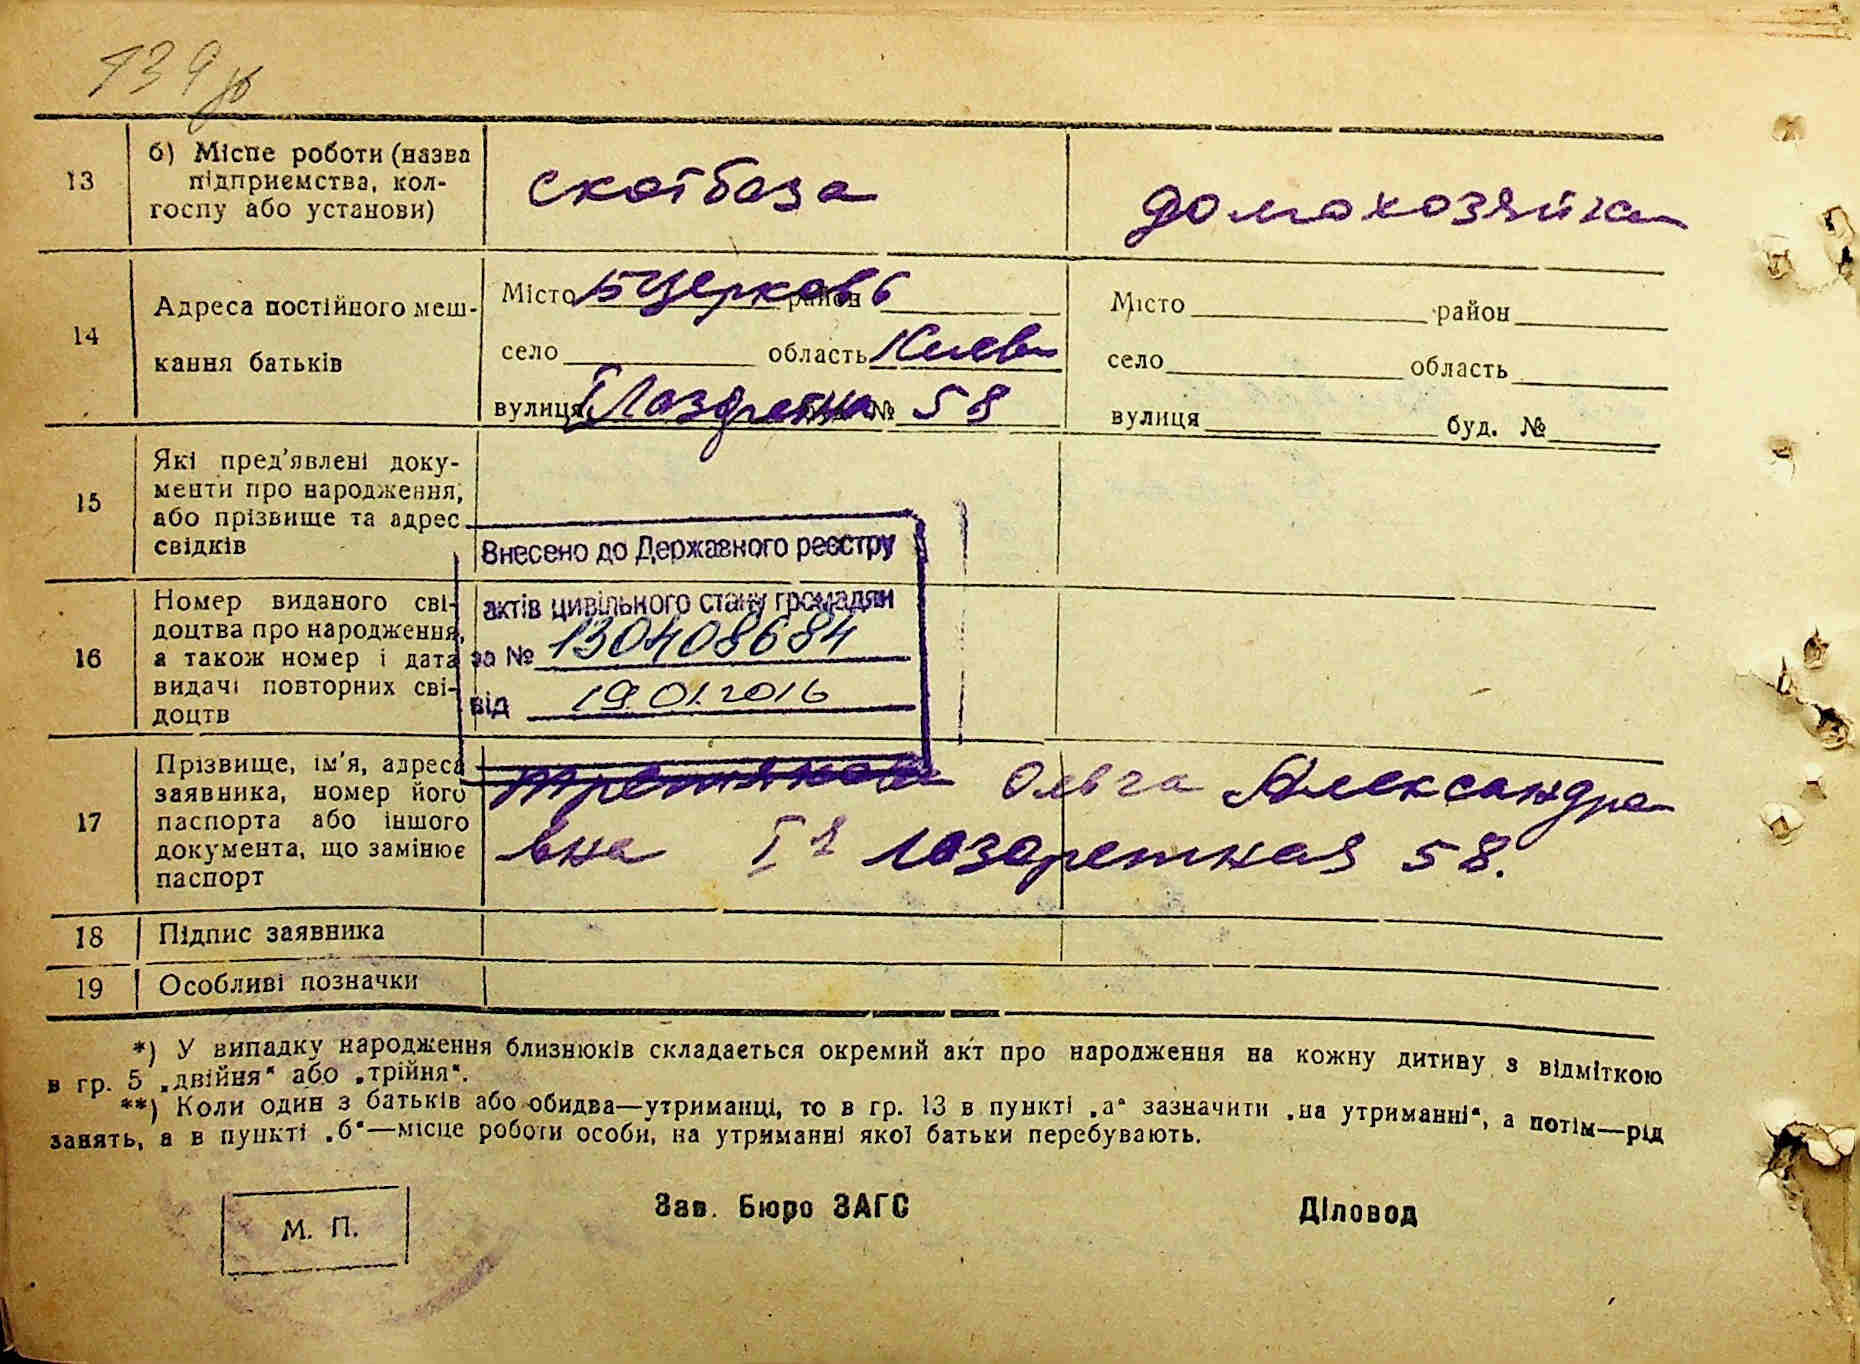 139
13
б) Місце роботи (назва
підприємства, кол-
госпу або установи)
скотбаза
домохозяйка
14
Адреса постійного меш-
кання батьків
Місто Бцерковь район
село область Киев
вулиця № 58
Місто район
село область
вулиця буд. №
15
Які пред'явлені доку-
менти про народження,
або прізвище та адрес
свідків
Внесено до Державного реєстру
актів цивільного стану громадян
за № 130408684
від 19.01.2016
16
Номер виданого сві-
доцтва про народження,
а також номер і дата
видачі повторних сві-
доцтв
17
Прізвище, ім'я, адреса
заявника, номер його
паспорта або іншого
документа, що замінює
паспорт
Третякова Ольга Александра
вна I я Лазаретная 58.
18
Підпис заявника
19
Особливі позначки
*) У випадку народження близнюків складається окремий акт про народження на кожну дитину з відміткою
в гр. 5 „двійня“ або „трійня“.
**) Коли один з батьків або обидва—утриманці, то в гр. 13 в пункті „а“ зазначити „на утриманні“, а потім—рід
занять, а в пункті „б“—місце роботи особи, на утриманні якої батьки перебувають.
М. П.
Зав. Бюро ЗАГС
Діловод